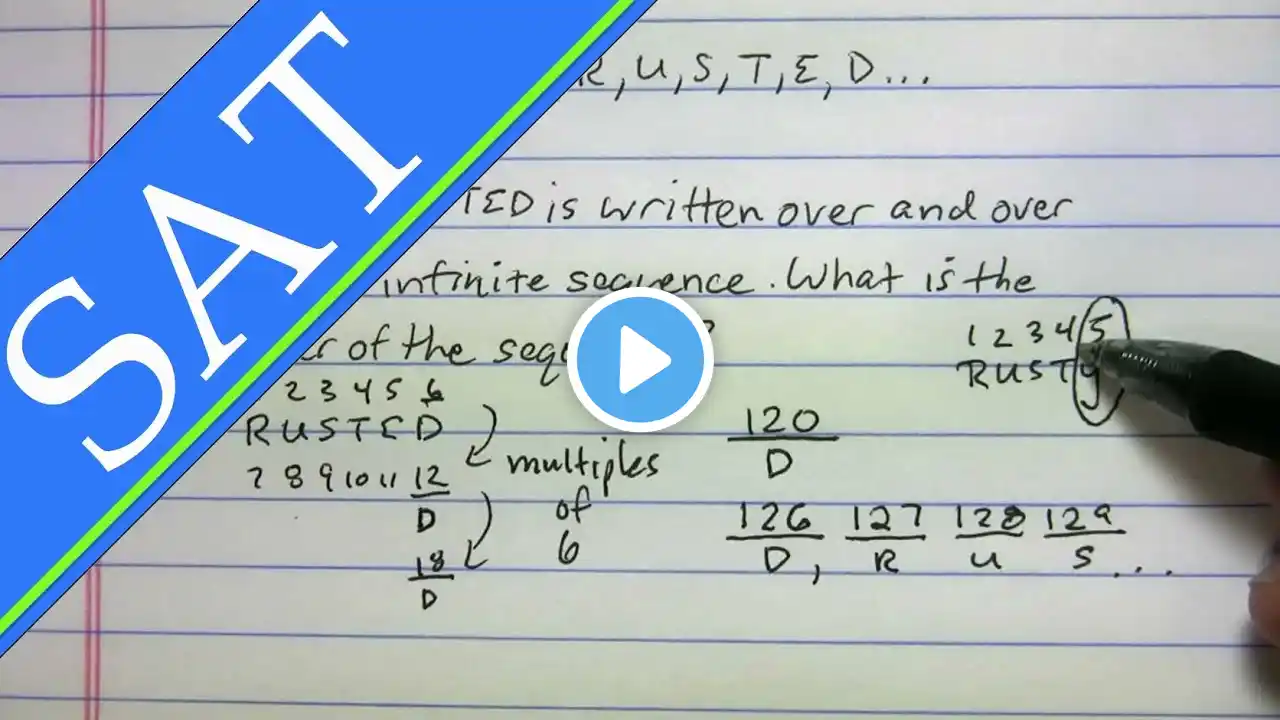 SAT
R, U, S, T, E, D...
TED is written over and over
infinite sequence. What is the
of the
1 2 3 4 5
RUSTY
2 3 4 5 6
RUSTED
7 8 9 10 11 12
D
18
D
multiples
of
6
120
D
126 127 128 129
D, R U S ...